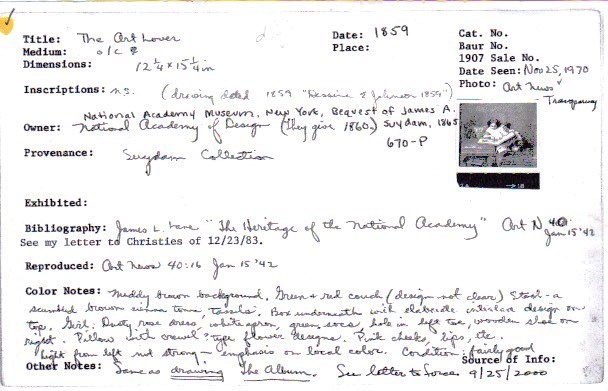 Title: The Art Lover
Date: 1859
Cat. No.
Medium: o/c
Place:
Baur No.
Dimensions: 12 1/4 x 15 1/4 in
1907 Sale No.
Date Seen: Nov 25, 1970
Inscriptions: n.s. (drawing dated 1859 "Dessine E Johnson 1859")
Photo: Art News
Transparency
National Academy Museum, New York, Bequest of James A. Suydam, 1865
Owner: National Academy of Design (They give 1860)
670-P
Provenance: Suydam Collection
Exhibited:
Bibliography: James L. Lane "The Heritage of the National Academy" Art N 40 Jan 15 '42
See my letter to Christies of 12/23/83.
Reproduced: Art News 40:16 Jan 15 '42
Color Notes: Muddy brown background. Green & red couch (design not clear) Stool - a
scumbled brown sienna tone, tassels. Box underneath with elaborate interior design on
top. Girl: Dusty rose dress, white apron, green socks, hole in left toe, wooden shoe on
right. Pillow with crewel type flower designs. Pink cheeks, lips, etc.
Light from left not strong - emphasis on local color. Condition: fairly good
Source of Info:
Other Notes: Same as drawing The Album. See letter to 9/25/2000